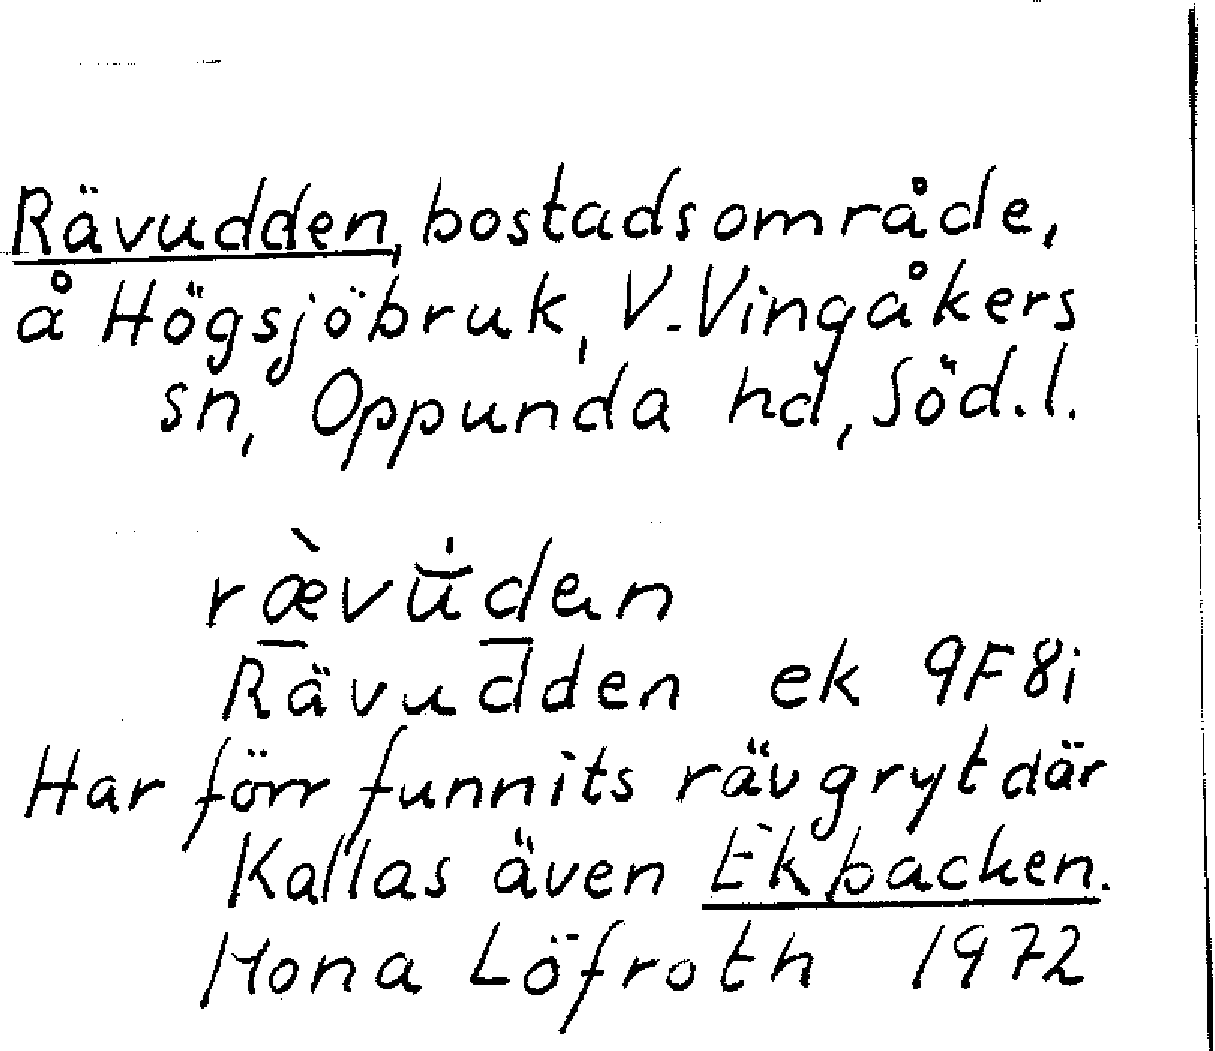 Rävudden, bostadsområde,
å Högsjöbruk, V. Vingåkers
sn, Oppunda hd, Söd. l.
rævuden
Rävudden ek 9F8i
Har förr funnits rävgryt där
Kallas även Ekbacken.
Mona Löfroth 1972